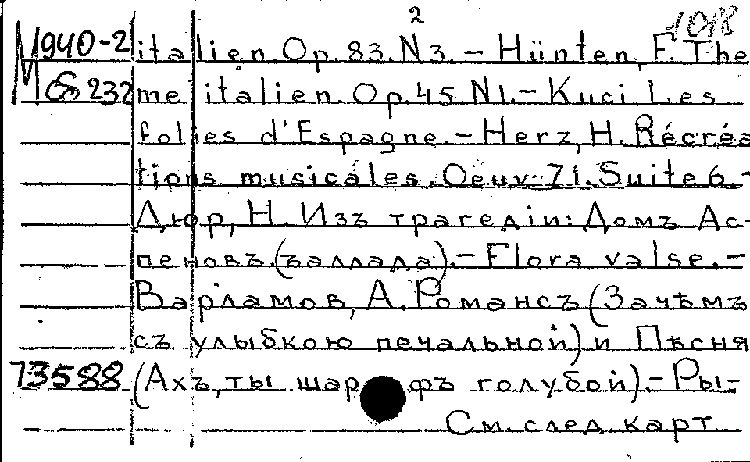 2
1018
М940-2 italien Op. 83. N3. – Hünten, F. The
М Сб 232 me italien Op. 45 N1. – Kuci Les
folies d'Espagne. – Herz, H. Récréa
tions musicales. Oeuv. 71. Suite 6. –
Дюр, Н. Изъ трагедіи: Домъ Ас-
пеновъ. (баллада). – Flora valse. –
Варламов, А. Романсъ (Зачѣмъ
съ улыбкою печальной) и Пѣсня
73588 (Ахъ, ты шар фъ голубой). – Ры-
См. след карт